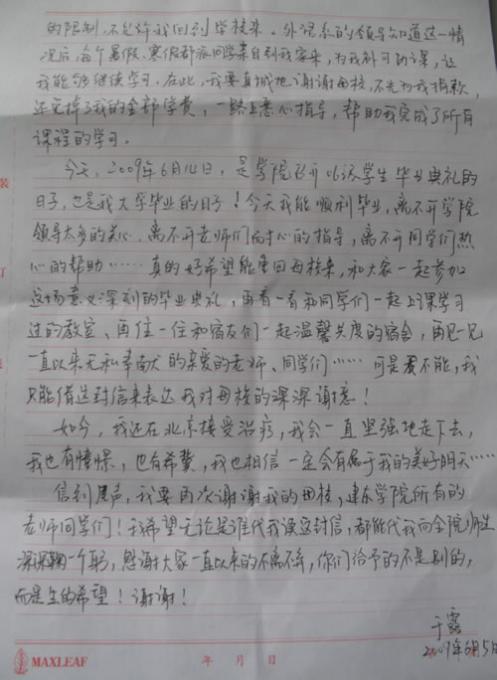 的限制,不允许我回到学校来。外语系的领导知道这一情
况后,每个暑假、寒假都派同学来到我家来,为我补习功课,让
我能够继续学习。在此,我要真诚地谢谢母校,不光为我捐款,
还免掉了我的全部学费,一路上悉心指导,帮助我完成了所有
课程的学习。
今天,2009年6月14日,是学院召开09级学生毕业典礼的
日子,也是我大学毕业的日子!今天我能顺利毕业,离不开学院
领导太多的关心,离不开老师们的指导,离不开同学们热
心的帮助……真的好希望能重回母校来,和大家一起参加
这场意义深刻的毕业典礼,再看一看和同学们一起上课学习
过的教室、再住一住和宿友们一起温馨共度的宿舍,再见一见
一直以来无私奉献的亲爱的老师、同学们……可是我不能,我
只能借这封信来表达我对母校的深深谢意!
如今,我还在北京接受治疗,我会一直坚强地走下去,
我也有憧憬,也有希冀,我也相信一定会有属于我的美好明天……
信到尾声,我要再次谢谢我的母校,建东学院所有的
老师同学们!我希望无论是谁代我读这封信,都能代我向全院师生
深深鞠一个躬,感谢大家一直以来的不离不弃,你们给予的不是别的,
而是生的希望!谢谢!
于露
2009年6月5日
MAXLEAF
年 月 日
装
订